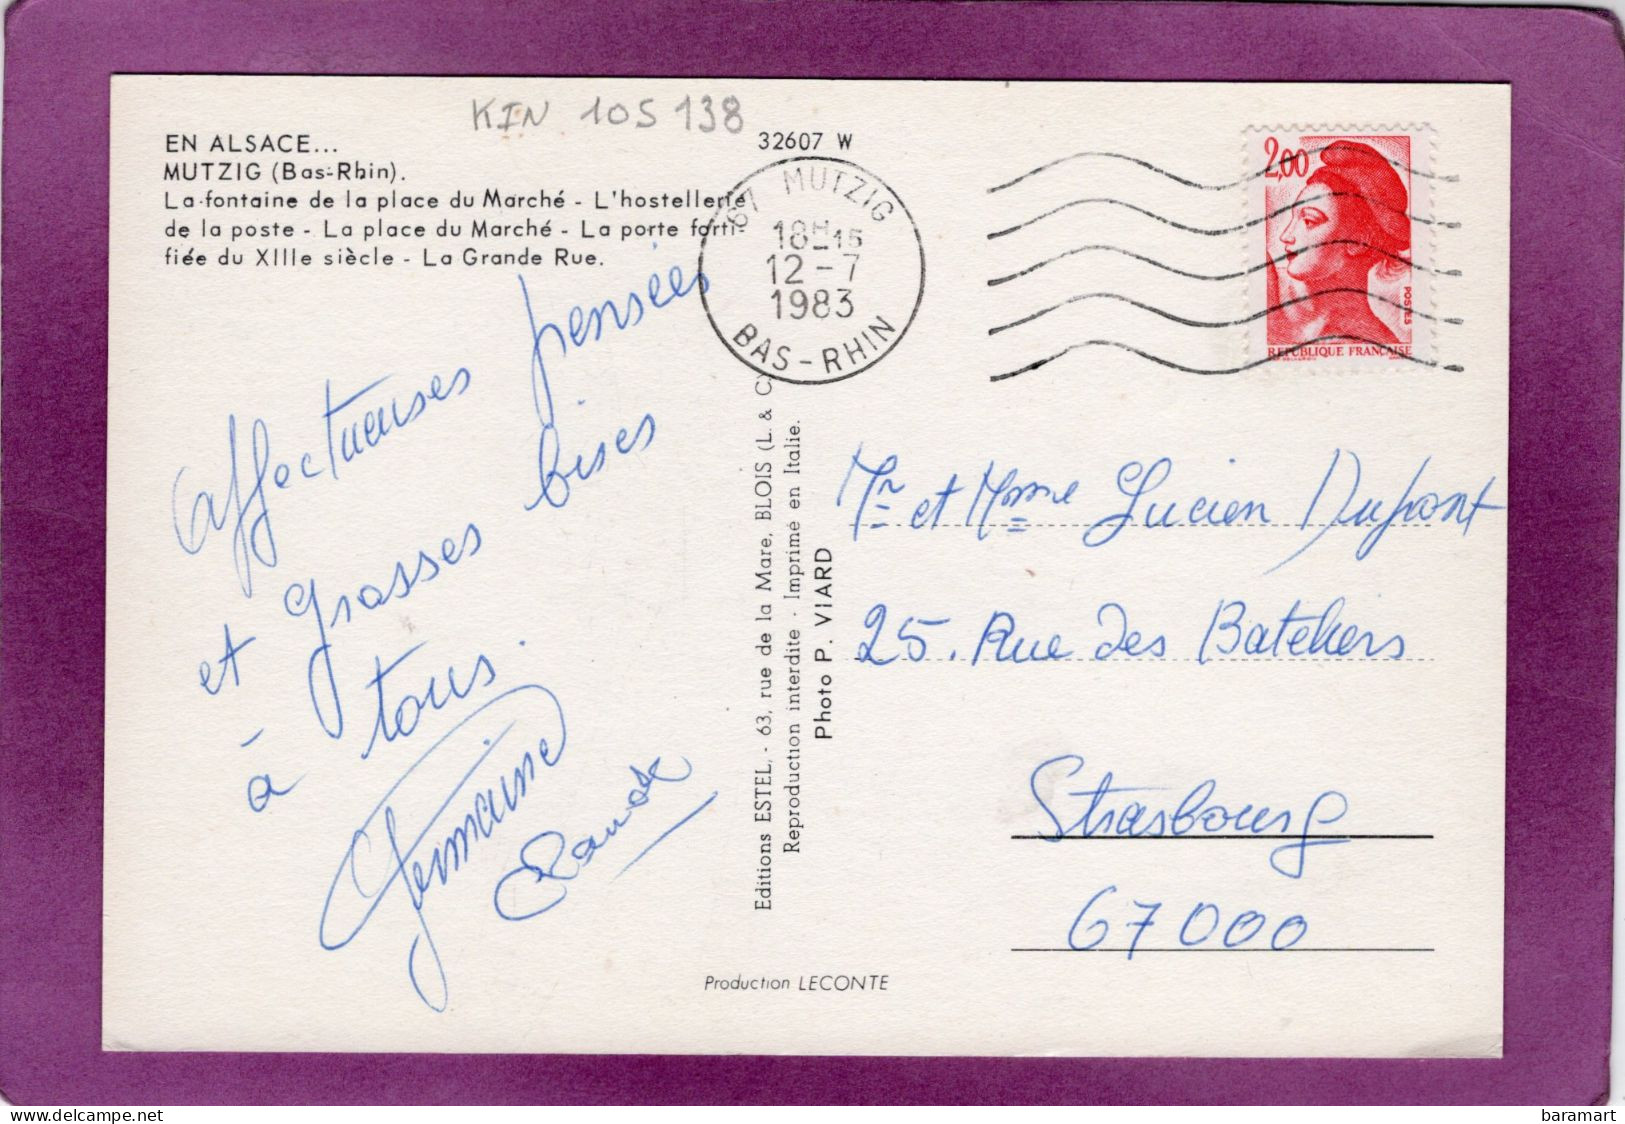 KIN 105 138
EN ALSACE...
MUTZIG (Bas-Rhin).
La fontaine de la place du Marché - L'hostellerie
de la poste - La place du Marché - La porte forti-
fiée du XIIIe siècle - La Grande Rue.
32607 W
67 MUTZIG
18H15
12-7
1983
BAS-RHIN
2,00
POSTES
REPUBLIQUE FRANÇAISE
affectueuses pensées
et grosses bises
à tous.
Germaine
Claude
Editions ESTEL, - 63, rue de la Mare, BLOIS (L. & C
Reproduction interdite - Imprimé en Italie.
Photo P. VIARD
Mr et Mme Lucien Dupont
25. Rue des Bateliers
Strasbourg
67000
Production LECONTE
www.delcampe.net
baramart